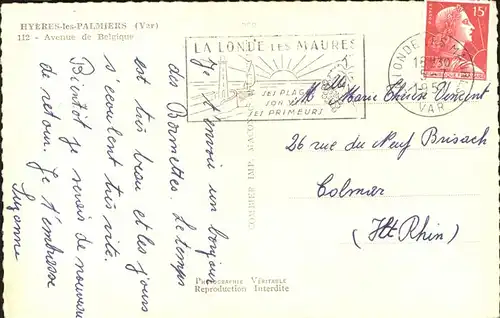 HYERES-les-PALMIERS (Var)
112 - Avenue de Belgique
LA LONDE LES MAURES
SES PLAGES
SON VIN
SES PRIMEURS
15F
LA LONDE LES MAURES
VAR
Je t'envoie un bonjour
des Bormettes. Le temps
est très beau et les jours
s'écoulent très vite.
Bientôt je serais de nouveau
de retour. Je t'embrasse
Suzanne
Melle Marie Thérèse Vincent
26 rue du Neuf Brisach
Colmar
(Ht Rhin)
COMBIER IMP. MACON
PHOTOGRAPHIE VÉRITABLE
Reproduction Interdite